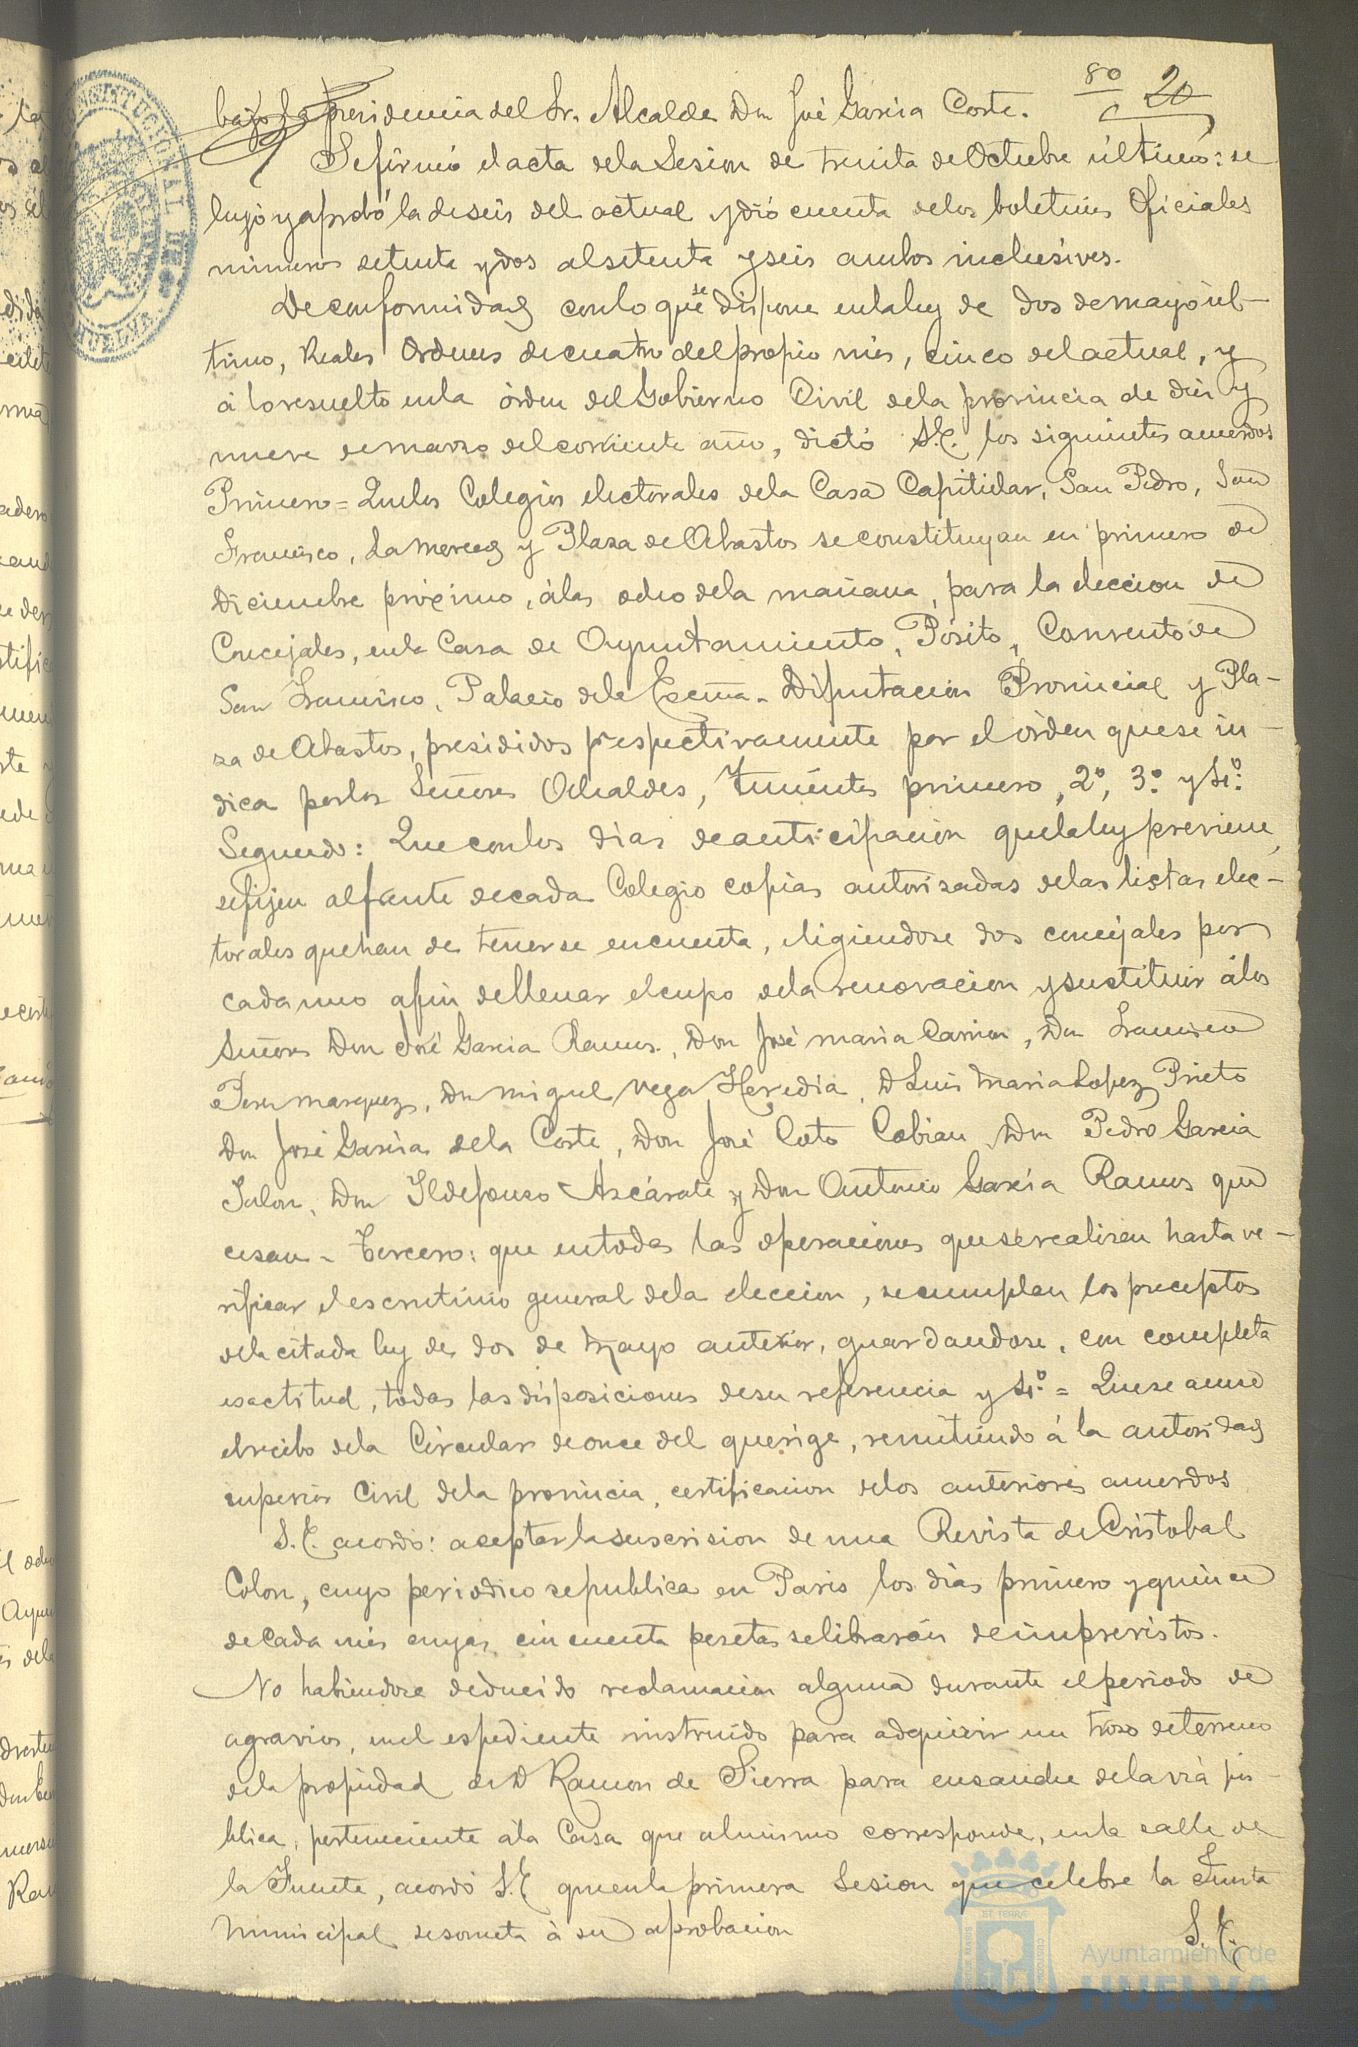 80 20
bajo la presidencia del Sr. Alcalde Dn José Garcia Corte.
Se firmó el acta de la Sesion de treinta de Octubre último: se
leyó y aprobó la de seis del actual y dió cuenta de los boletines Oficiales
números setenta y dos al setenta y seis ambos inclusives.
De conformidad con lo que se dispone en la ley de dos de mayo úl-
timo, Reales Ordenes de cuatro del propio mes, cinco del actual, y
á lo resuelto en la órden del Gobierno Civil de la provincia de diez y
nueve de marzo del corriente año, dictó S.E. los siguientes acuerdos
Primero = Que los Colegios electorales de la Casa Capitular, San Pedro, San
Francisco, La merced y Plaza de Abastos se constituyan en primero de
Diciembre próximo, á las ocho de la mañana, para la eleccion de
Concejales, en la Casa de Ayuntamiento, Pósito, Convento de
San Francisco, Palacio de la Excma. Diputacion Provincial y Pla-
za de Abastos, presididos respectivamente por el órden que se in-
dica por los Señores Alcaldes, Tenientes primero, 2º, 3º y 4º.
Segundo: Que con los dias de anticipacion que la ley previene,
se fijen al frente de cada Colegio copias autorizadas de las listas elec-
torales que han de tenerse en cuenta, eligiendose dos concejales por
cada uno a fin de llenar el cupo de la renovacion y sustituir á los
Señores Don José Garcia Ramos, Don José maria Carrion, Dn Francisco
Perez marquez, Dn miguel Vega Heredia, D Luis Maria Lopez Prieto
Dn José Garcia de la Corte, Don José Coto Cobian, Dn Pedro Garcia
Jalon, Dn Ildefonso Azcárate y Don Antonio Garcia Ramos que
cesan - Tercero: que en todas las operaciones que se realizen hasta ve-
rificar el escrutinio general de la eleccion, se cumplan los preceptos
de la citada ley de dos de Mayo anterior, guardandose, con completa
exactitud, todas las disposiciones de su referencia y 4º = Que se acuse
el recibo de la Circular de once del que rige, remitiendo á la autoridad
superior Civil de la provincia, certificacion de los anteriores acuerdos
S.E. acordó: aceptar la suscrision de una Revista de Cristobal
Colon, cuyo periodico se publica en Paris los dias primero y quince
de Cada mes cuyas cincuenta pesetas se librarán de imprevistos.
No habiendose deducido reclamacion alguna durante el periodo de
agravios, en el espediente instruido para adquirir un trozo de terreno
de la propiedad de D Ramon de Sierra para ensanche de la via pú-
blica, perteneciente á la Casa que al mismo corresponde, en la calle de
la Fuente, acordó S.E. que en la primera Sesion que celebre la Junta
Municipal se someta á su aprobacion
S. E.
Ayuntamiento de
HUELVA